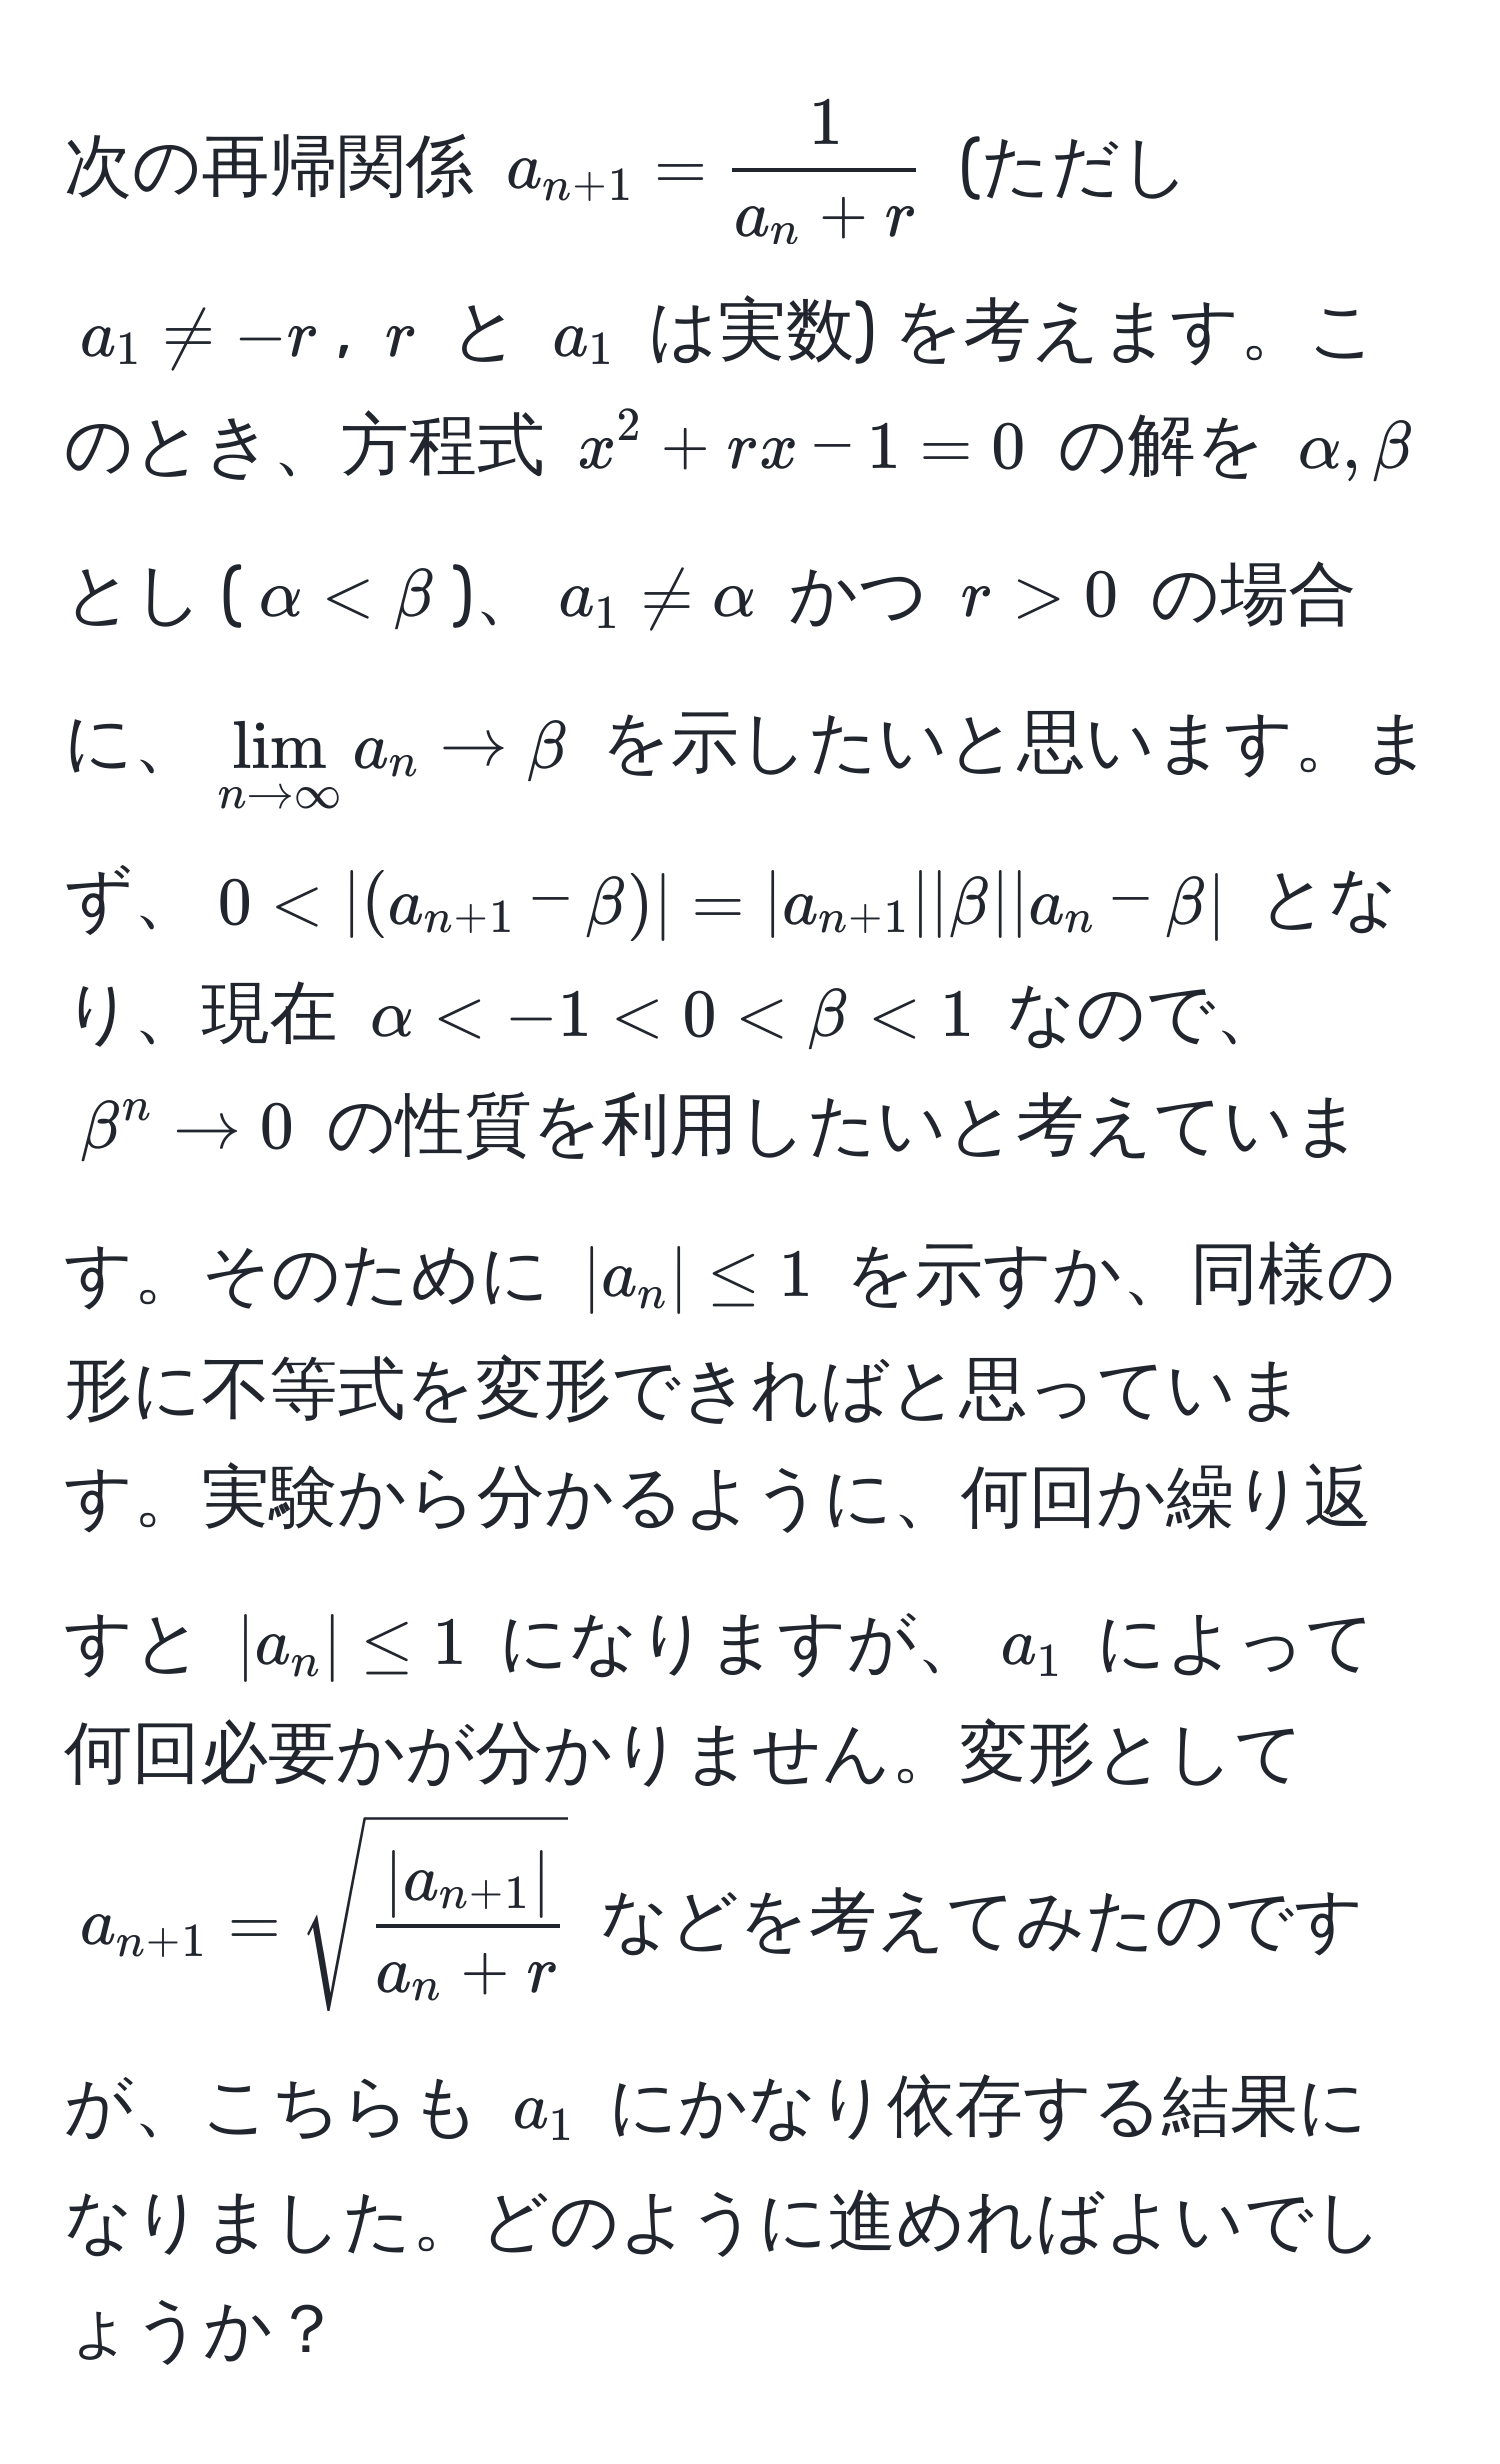 次の再帰関係 $a_{n+1} = \dfrac{1}{a_n + r}$ (ただし
$a_1 \neq -r$ , $r$ と $a_1$ は実数) を考えます。こ
のとき、方程式 $x^2 + rx - 1 = 0$ の解を $\alpha, \beta$
とし ( $\alpha < \beta$ )、 $a_1 \neq \alpha$ かつ $r > 0$ の場合
に、 $\displaystyle\lim_{n \to \infty} a_n \to \beta$ を示したいと思います。ま
ず、 $0 < |(a_{n+1} - \beta)| = |a_{n+1}||\beta||a_n - \beta|$ とな
り、現在 $\alpha < -1 < 0 < \beta < 1$ なので、
$\beta^n \to 0$ の性質を利用したいと考えていま
す。そのために $|a_n| \leq 1$ を示すか、同様の
形に不等式を変形できればと思っていま
す。実験から分かるように、何回か繰り返
すと $|a_n| \leq 1$ になりますが、 $a_1$ によって
何回必要かが分かりません。変形として
$a_{n+1} = \sqrt{\dfrac{|a_{n+1}|}{a_n + r}}$ などを考えてみたのです
が、こちらも $a_1$ にかなり依存する結果に
なりました。どのように進めればよいでし
ょうか？